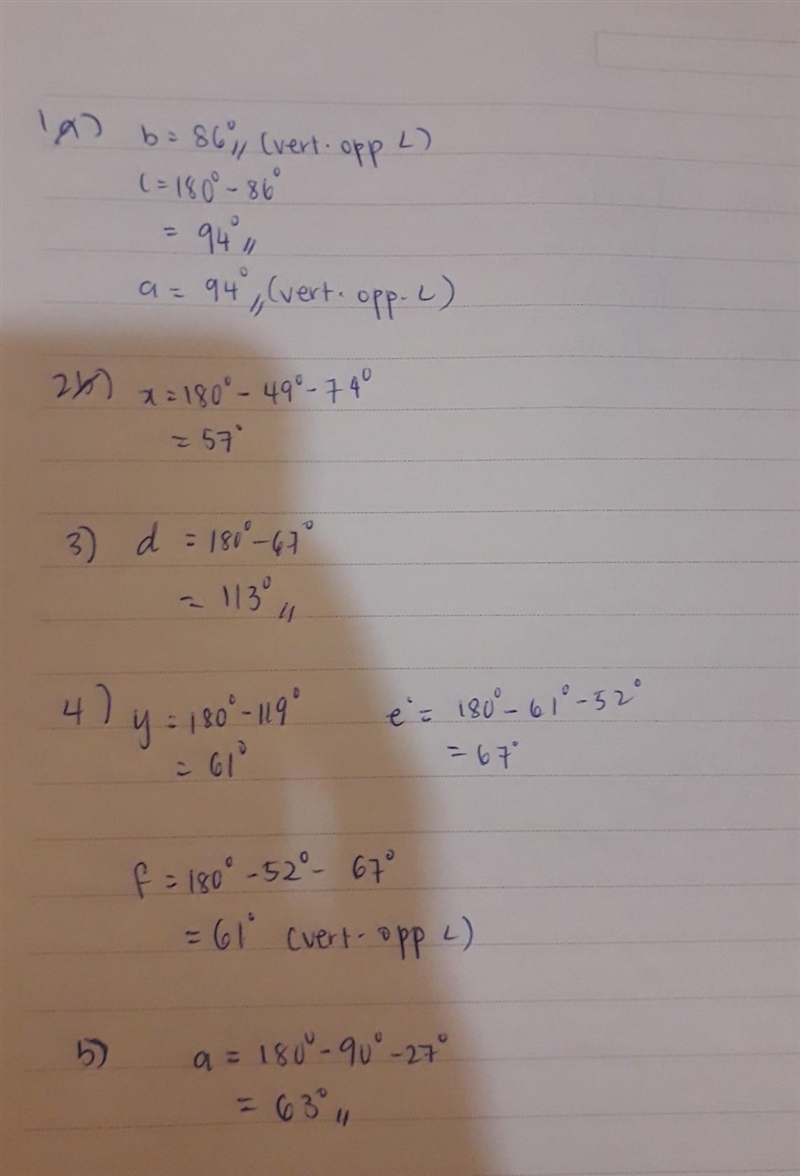 1a) b = 86°,, (vert. opp ∠)
c = 180° - 86°
= 94°,,
a = 94°,, (vert. opp. ∠)
2b) x = 180° - 49° - 74°
= 57°
3) d = 180° - 67°
= 113°,,
4) y = 180° - 119° e = 180° - 61° - 52°
= 61° = 67°
f = 180° - 52° - 67°
= 61° (vert. opp ∠)
5) a = 180° - 90° - 27°
= 63°,,